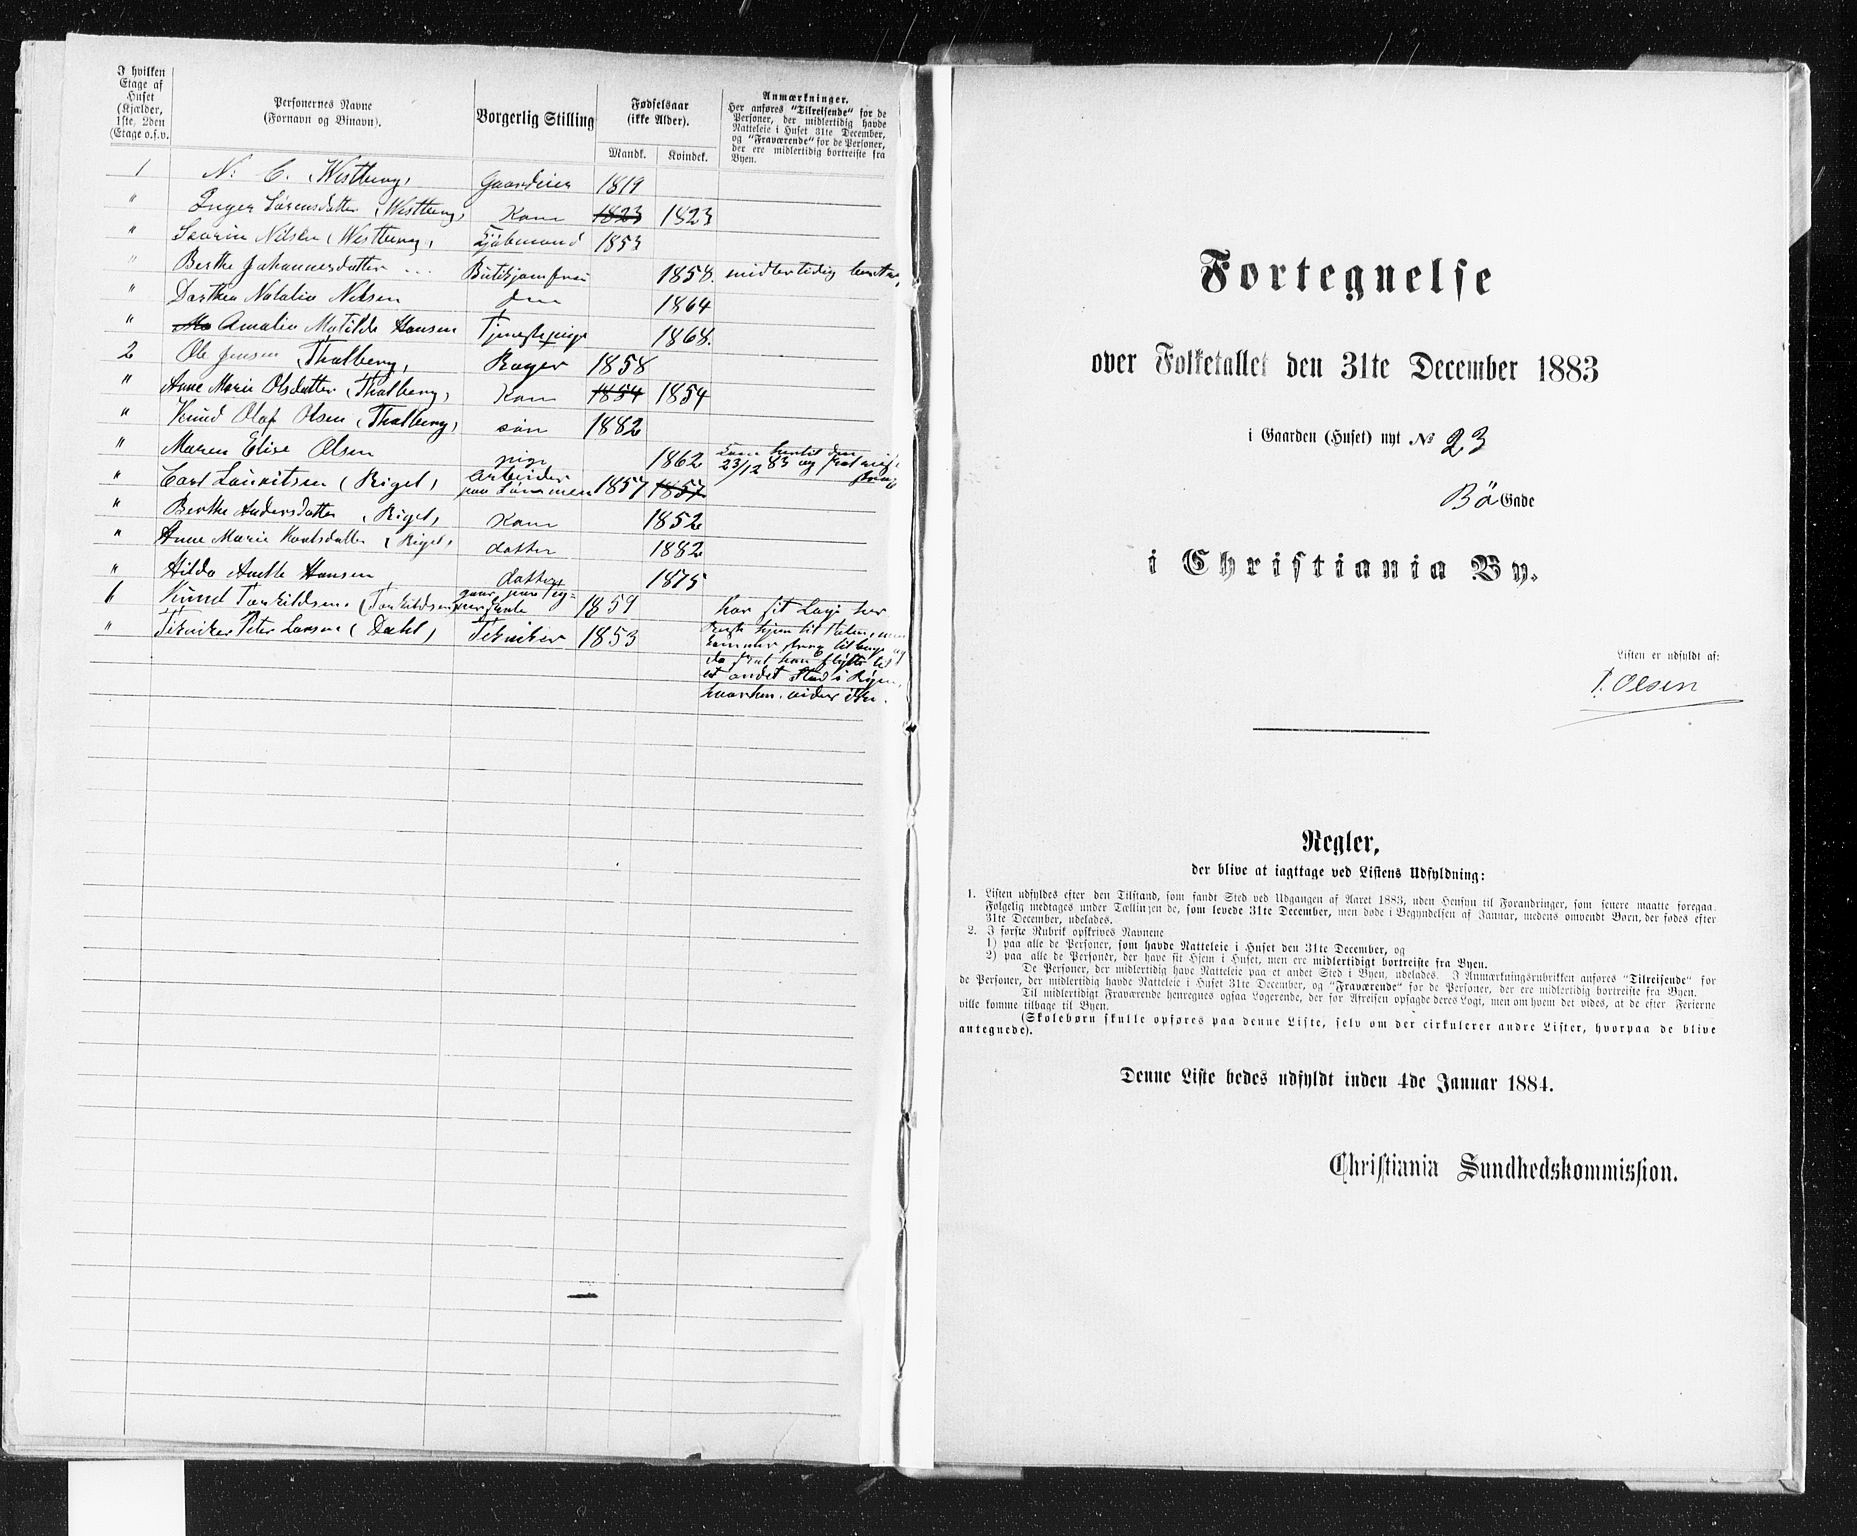 I hvilken
Etage af
Huset
(Kjælder,
1ste, 2den
(Etage o.s.v.
Personernes Navne
(Fornavn og Binavn).
Borgerlig Stilling
Fødselsaar
(ikke Alder).
Mandk. Kvindek.
Anmærkninger.
Her anføres "Tilreisende" for de
Personer, der midlertidig havde
Natteleie i Huset 31te December,
og "Fraværende" for de Personer,
der ere midlertidig bortreiste fra
Byen.
1 N. C. (Westberg) Gaardeier 1819
" Inger Sørensdatter (Westberg) Kone 1823 1823
" Severin Nilsen (Westberg) Kjøbmand 1853
" Berthe Johannesdatter ... Butikjomfru 1858. midlertidig
" Dorthea Natalia Nilsen 1864
" Mo Amalia Matilde Hansen Tjenestepige 1868.
2 Ole Jensen (Thalberg) Bager 1858
" Anne Marie Olsdatter (Thalberg) Kone 1854 1854
" Knud Olaf Olsen (Thalberg) søn 1882
" Maren Elise Olsen pige 1862 23/12 83 og
" Carl Lauritsen (Rigel) Arbeider 1857 1857
" Berthe Andersdatter (Rigel) Kone 1852
" Anne Marie Karlsdatter (Rigel) datter 1882
" Hilda Anette Hansen datter 1875
Knud Torkildsen (Torkildsen) 1859 Har sit Logi her
" Tekniker Peter Larsen (Dahl) Tekniker 1853
et andet Sted i Byen,
hvorhen vides ikke.
Fortegnelse
over Folketallet den 31te December 1883
i Gaarden (Huset) nyt № 23
Bö Gade
i Christiania By.
Listen er udfyldt af:
Olsen
Regler,
der blive at iagttage ved Listens Udfyldning:
1. Listen udfyldes efter den Tilstand, som fandt Sted ved Udgangen af Aaret 1883, uden Hensyn til Forandringer, som senere maatte foregaa.
Følgelig medtages under Tællingen de, som levede 31te December, men døde i Begyndelsen af Januar, medens omvendt Børn, der fødes efter
31te December, udelades.
2. I første Rubrik opskrives Navnene
1) paa alle de Personer, som havde Natteleie i Huset den 31te December, og
2) paa alle de Personer, der have sit Hjem i Huset, men ere midlertidigt bortreiste fra Byen.
De Personer, der midlertidig have Natteleie paa et andet Sted i Byen, udelades. I Anmærkningsrubrikken anføres "Tilreisende" for
de Personer, der midlertidig havde Natteleie i Huset 31te December, og "Fraværende" for de Personer, der ere midlertidig bortreiste fra Byen.
Til midlertidigt Fraværende henregnes ogsaa Logerende, der før Afreisen opsagde deres Logi, men om hvem det vides, at de efter Ferierne
ville komme tilbage til Byen.
(Skolebørn skulle opføres paa denne Liste, selv om der cirkulerer andre Lister, hvorpaa de blive
antegnede).
Denne Liste bedes udfyldt inden 4de Januar 1884.
Christiania Sundhedskommission.